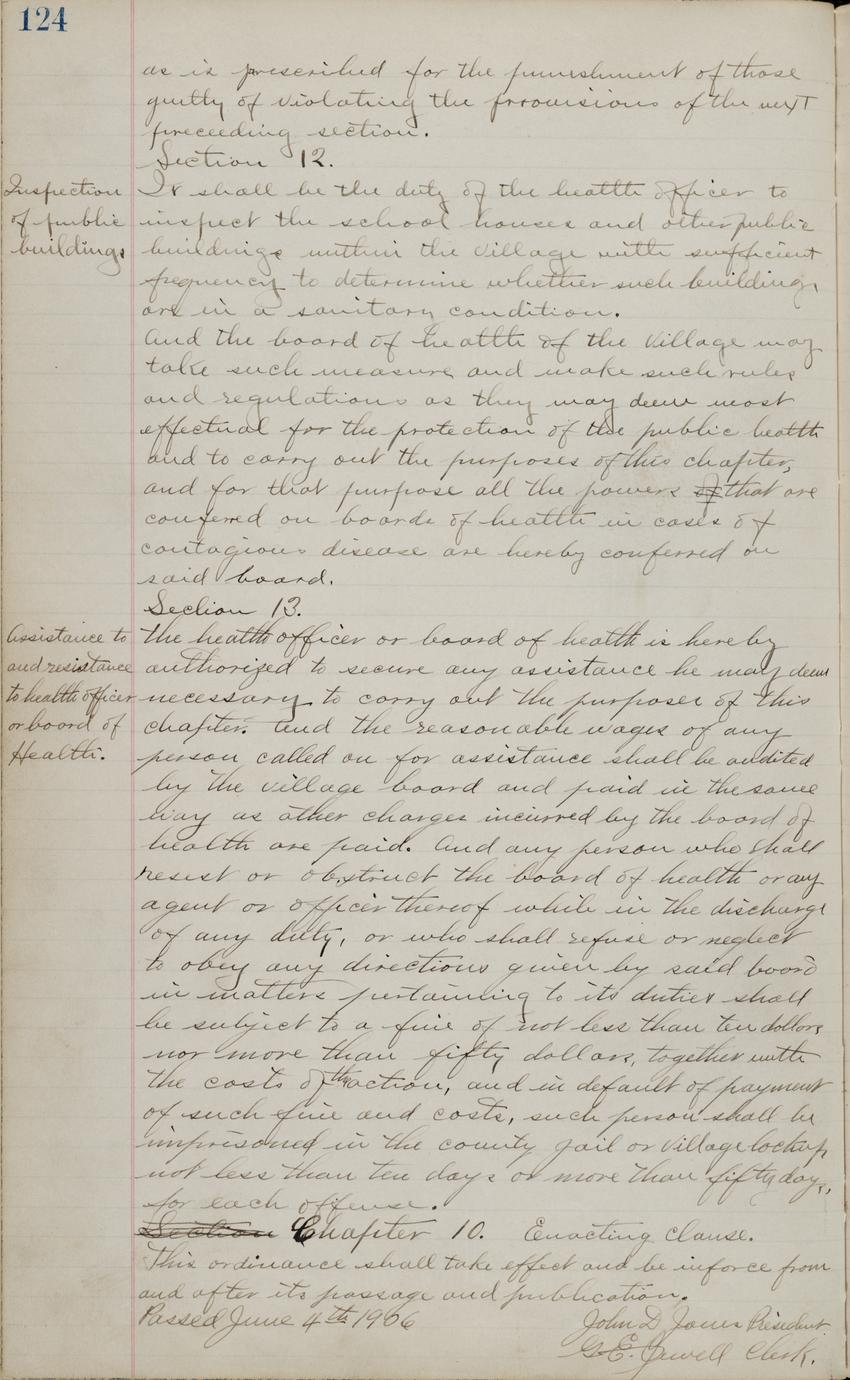 124
as is prescribed for the punishment of those
guilty of violating the provisions of the next
preceeding section.
Section 12.
Inspection
of public
buildings
It shall be the duty of the health officer to
inspect the school houses and other public
buildings within the village with sufficient
frequency to determine whether such buildings
are in a sanitary condition.
And the board of health of the village may
take such measure and make such rules
and regulations as they may deem most
effectual for the protection of the public health
and to carry out the purposes of this chapter,
and for that purpose all the powers of that are
confered on boards of health in cases of
contagious disease are hereby conferred on
said board.
Section 13.
Assistance to
and resistance
to health officer
or board of
Health.
The health officer or board of health is hereby
authorized to secure any assistance he may deem
necessary to carry out the purposes of this
chapter. And the reasonable wages of any
person called on for assistance shall be audited
by the village board and paid in the same
way as other charges incurred by the board of
health are paid. And any person who shall
resist or obstruct the board of health or any
agent or officer thereof while in the discharge
of any duty, or who shall refuse or neglect
to obey any directions given by said board
in matters pertaining to its duties shall
be subject to a fine of not less than ten dollars
nor more than fifty dollars, together with
the costs of the action, and in default of payment
of such fine and costs, such person shall be
imprisoned in the county jail or village lockup
not less than ten days or more than fifty days,
for each offense.
Section Chapter 10. Enacting Clause.
This ordinance shall take effect and be inforce from
and after its passage and publication.
Passed June 4th 1906
John D Jones President
G.E. Jewell Clerk.